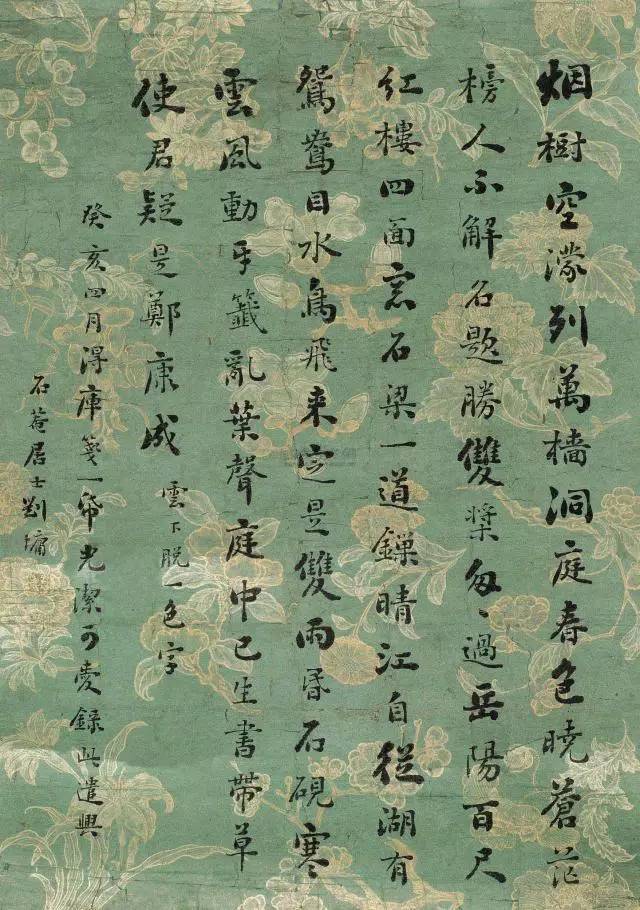 烟樹空濛列萬檣洞庭春色曉蒼茫
榜人不解名題勝雙槳匆、過岳陽百尺
紅樓四面窓石梁一道鏁晴江自從湖有
鴛鴦目水鳥飛来定是雙雨昏石硯寒
雲風動牙籤亂葉聲庭中已生書帶草
使君疑是鄭康成 雲下脱一色字
癸亥四月得庫箋一帋光潔可愛錄此遣興
石菴居士劉墉